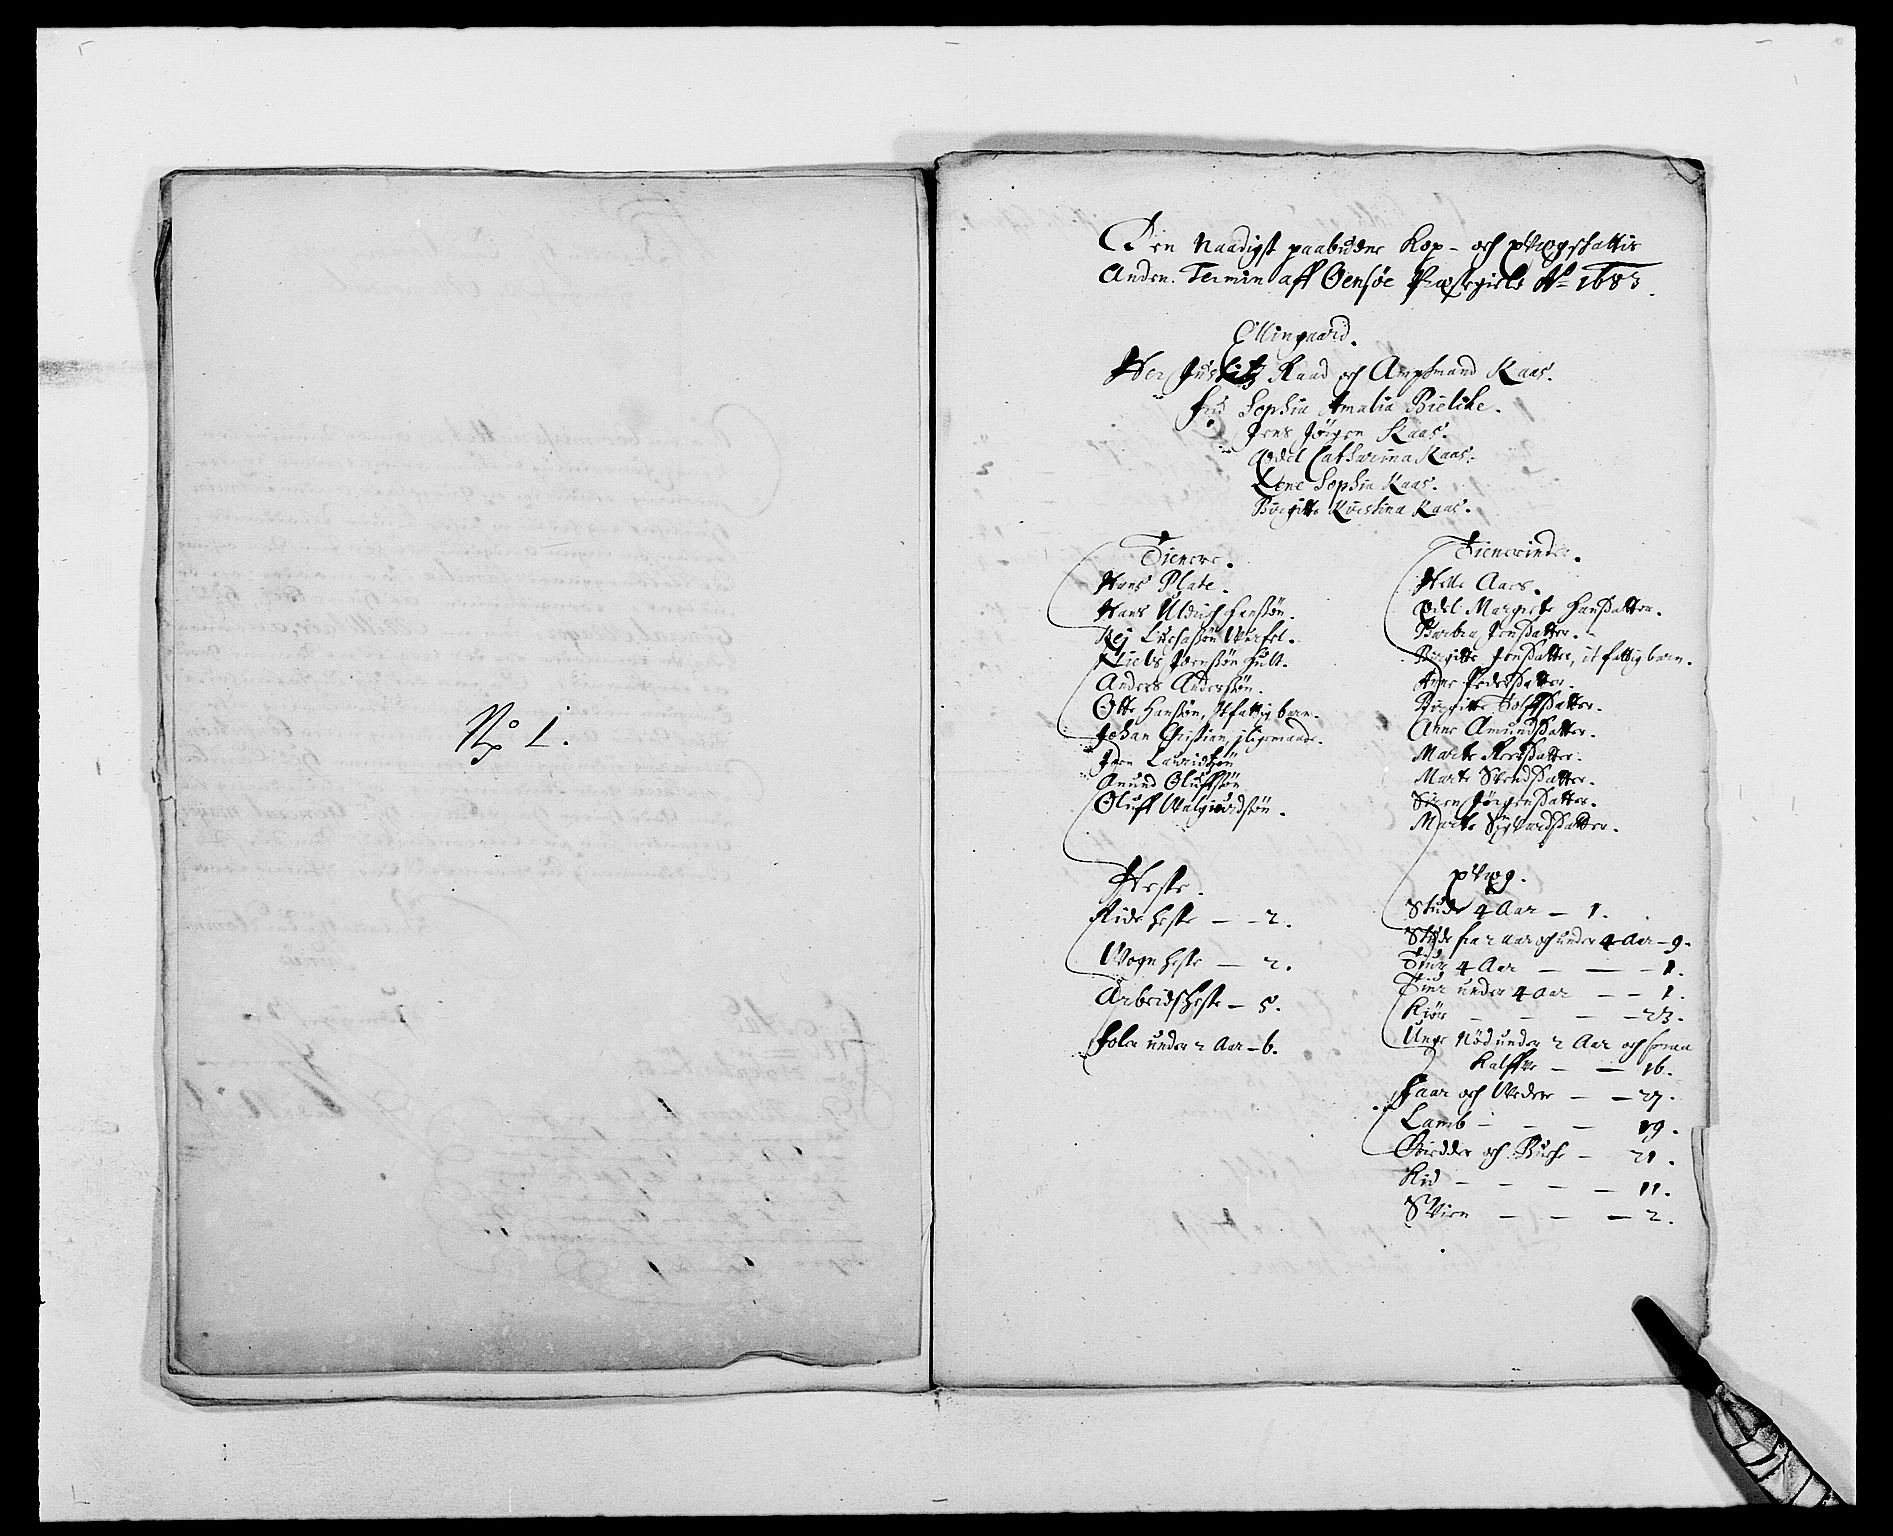 No 1.
Den Naadigst paabudne Kop- och qvægskattis
Anden Termin aff Oensøe Præstegield Ao 1683.
Ellingaard.
Her Justitz Raad och Amptmand Kaas.
Frue Sophia Amalia Bielcke.
Jens Jørgen Kaas.
Edel Catharina Kaas.
Lene Sophia Kaas.
Birgitte Kirstina Kaas.
Tienere.
Hans Plate.
Hans Uldrich Hanssøn.
Niels Hult.
Anders Anderssøn.
Otte Hanssøn, it fattig barn.
Johan Christian, iligemaade.
Jden Lauridsøn
Amund Oluffsøn
Oluff
Heste.
Ride heste — — 2.
Wogn heste — 2.
Arbeidsheste — 5.
Foler under 2 Aar — 6.
Tienerinder.
Helle Aars.
Edel Margrete Hansdatter.
Barbra Jensdatter.
Birgitte Jensdatter, it fattig barn.
Anne Pedersdatter.
Birgitte
Anne Amundsdatter.
Marte
Marte Svendsdatter.
Siren Jørgensdatter.
Marte Syvardsdatter.
qvæg.
Stude 4 Aar — 1.
Stude fra 2 Aar och under 4 Aar — 9.
Tiur 4 Aar — — — 1.
Tiur under 4 Aar — — 1.
Kiør — — — — 23.
Unge Nød under 2 Aar och
Kalffve — — 16.
Faar och Wedere — — 27.
Lamb — — — 19.
Giedder och Bucke — 21.
Kid — — — — 11.
Sviin — — — 2.